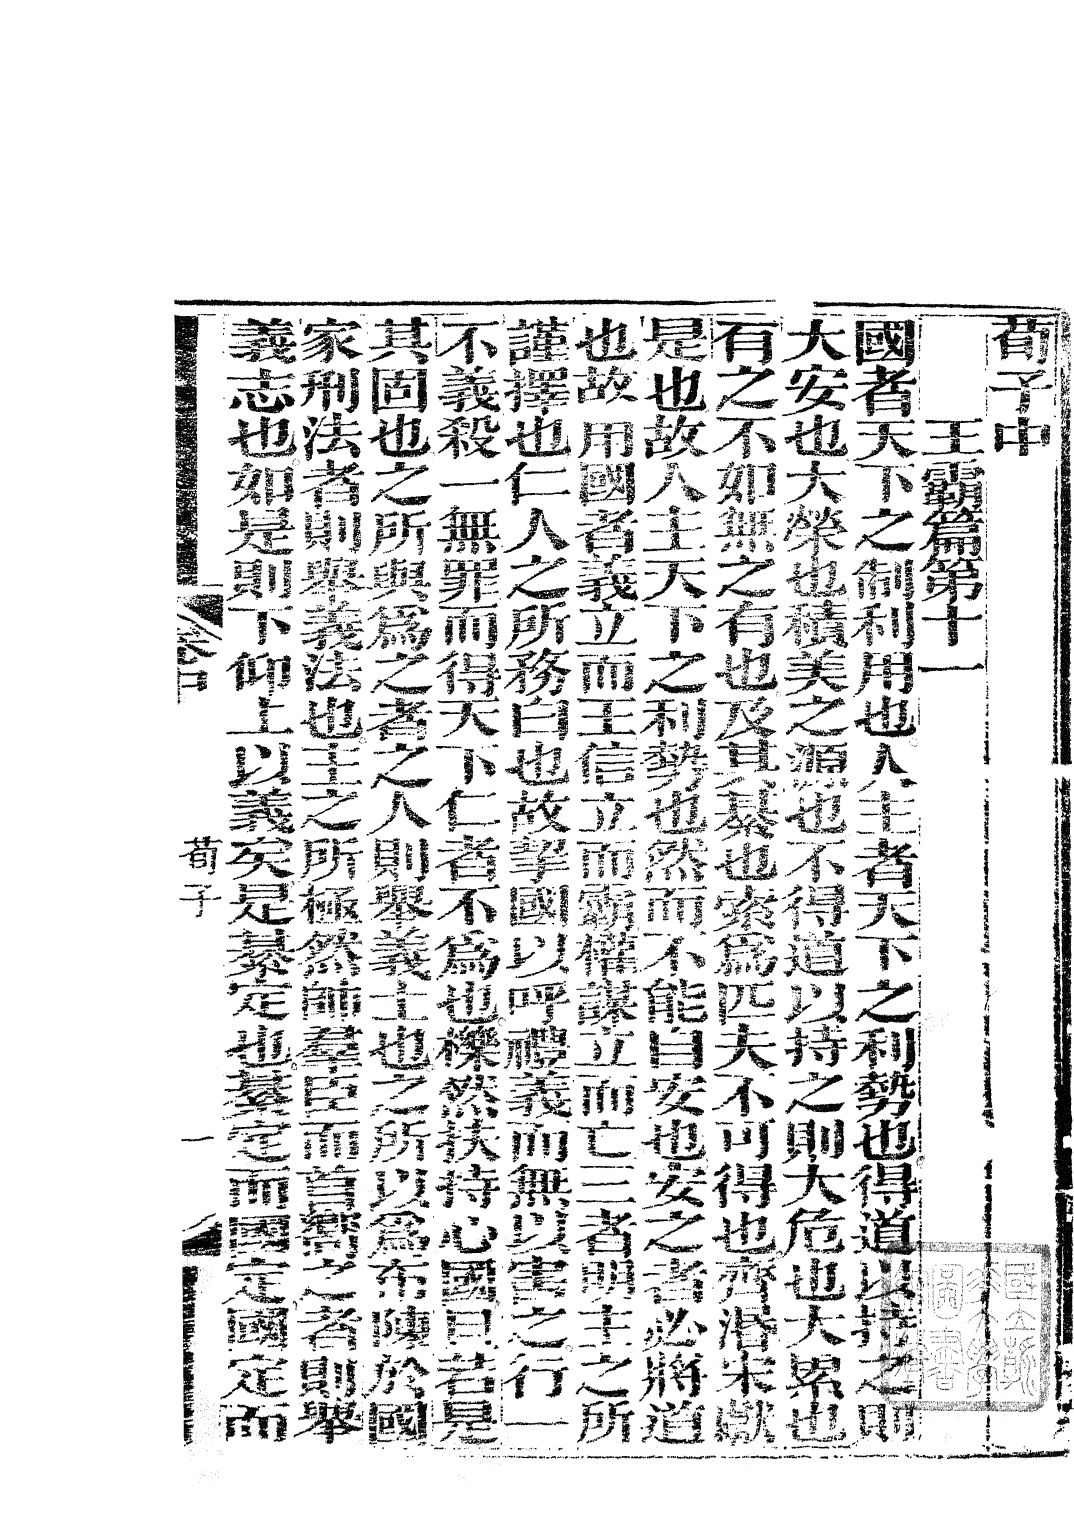 荀子中
王霸篇第十一
國者天下之制利用也人主者天下之利勢也得道以持之則
大安也大榮也積美之源也不得道以持之則大危也大累也
有之不如無之有也及其綦也索爲匹夫不可得也齊湣宋獻
是也故人主天下之利勢也然而不能自安也安之者必將道
也故用國者義立而王信立而霸權謀立而亡三者明主之所
謹擇也仁人之所務白也故挈國以呼禮義而無以害之行一
不義殺一無罪而得天下仁者不爲也擽然扶持心國且若是
其固也之所與爲之者之人則舉義士也之所以爲布陳於國
家刑法者則舉義法也主之所極然帥羣臣而首鄉之者則舉
義志也如是則下仰上以義矣是綦定也綦定而國定國定而
荀子
一